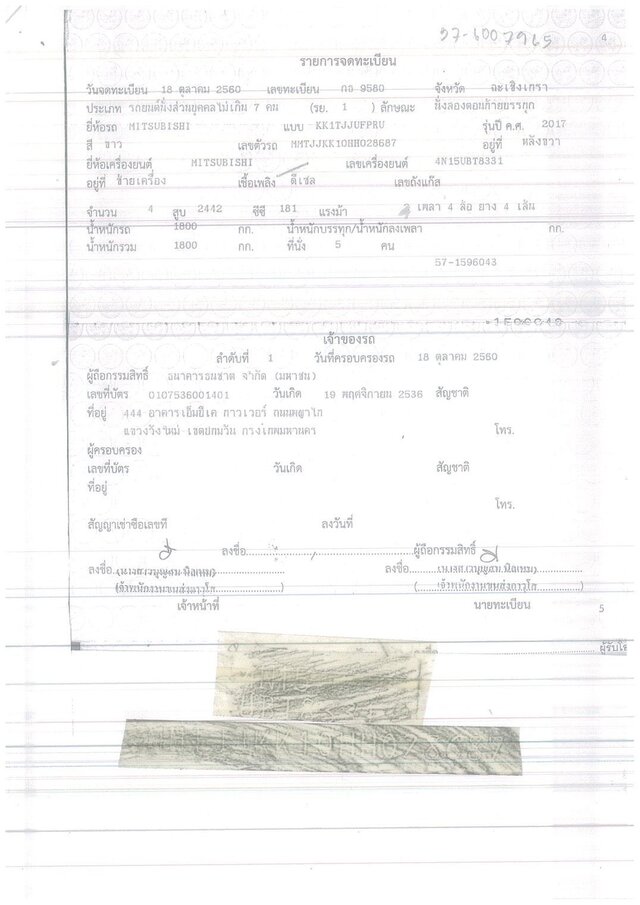 57-6007965
4
รายการจดทะเบียน
วันจดทะเบียน 18 ตุลาคม 2560 เลขทะเบียน กอ 9580 จังหวัด ฉะเชิงเทรา
ประเภท รถยนต์นั่งส่วนบุคคลไม่เกิน 7 คน (รย. 1 ) ลักษณะ นั่งสองตอนท้ายบรรทุก
ยี่ห้อรถ MITSUBISHI แบบ KK1TJJUFPRU รุ่นปี ค.ศ. 2017
สี ขาว เลขตัวรถ MMTJJKK10HH028687 อยู่ที่ หลังขวา
ยี่ห้อเครื่องยนต์ MITSUBISHI เลขเครื่องยนต์ 4N15UBT8331
อยู่ที่ ซ้ายเครื่อง เชื้อเพลิง ดีเซล เลขถังแก๊ส
จำนวน 4 สูบ 2442 ซีซี 181 แรงม้า 2 เพลา 4 ล้อ ยาง 4 เส้น
น้ำหนักรถ 1800 กก. น้ำหนักบรรทุก/น้ำหนักลงเพลา กก.
น้ำหนักรวม 1800 กก. ที่นั่ง 5 คน
57-1596043
เจ้าของรถ
ลำดับที่ 1 วันที่ครอบครองรถ 18 ตุลาคม 2560
ผู้ถือกรรมสิทธิ์ ธนาคารธนชาต จำกัด (มหาชน)
เลขที่บัตร 0107536001401 วันเกิด 19 พฤศจิกายน 2536 สัญชาติ
ที่อยู่ 444 อาคารเอ็มบีเค ทาวเวอร์ ถนนพญาไท
แขวงวังใหม่ เขตปทุมวัน กรุงเทพมหานคร โทร.
ผู้ครอบครอง
เลขที่บัตร วันเกิด สัญชาติ
ที่อยู่
โทร.
สัญญาเช่าซื้อเลขที่ ลงวันที่
ลงชื่อ ผู้ถือกรรมสิทธิ์
ลงชื่อ ลงชื่อ
(เจ้าพนักงานขนส่งอาวุโส) (เจ้าพนักงานขนส่งอาวุโส)
เจ้าหน้าที่ นายทะเบียน 5